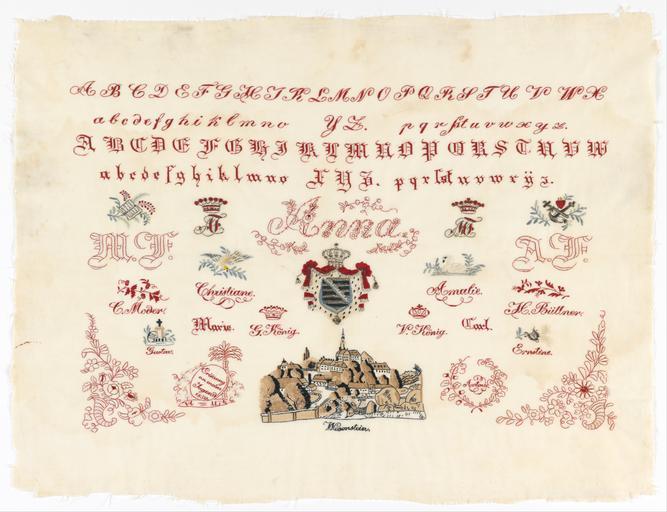 A B C D E F G H I K L M N O P Q R S T U V W X
a b c d e f g h i k l m n o Y Z. p q r s t u v w x y z.
A B C D E F G H I K L M N O P Q R S T U V W
a b c d e f g h i k l m n o X Y Z. p q r s t u v w x y z.
Anna.
M. F. A. F.
Christiane. Amalie.
C. Moder. H. Büttner.
Marie. G. König. V. König. Carl.
Gustav. Ernstine.